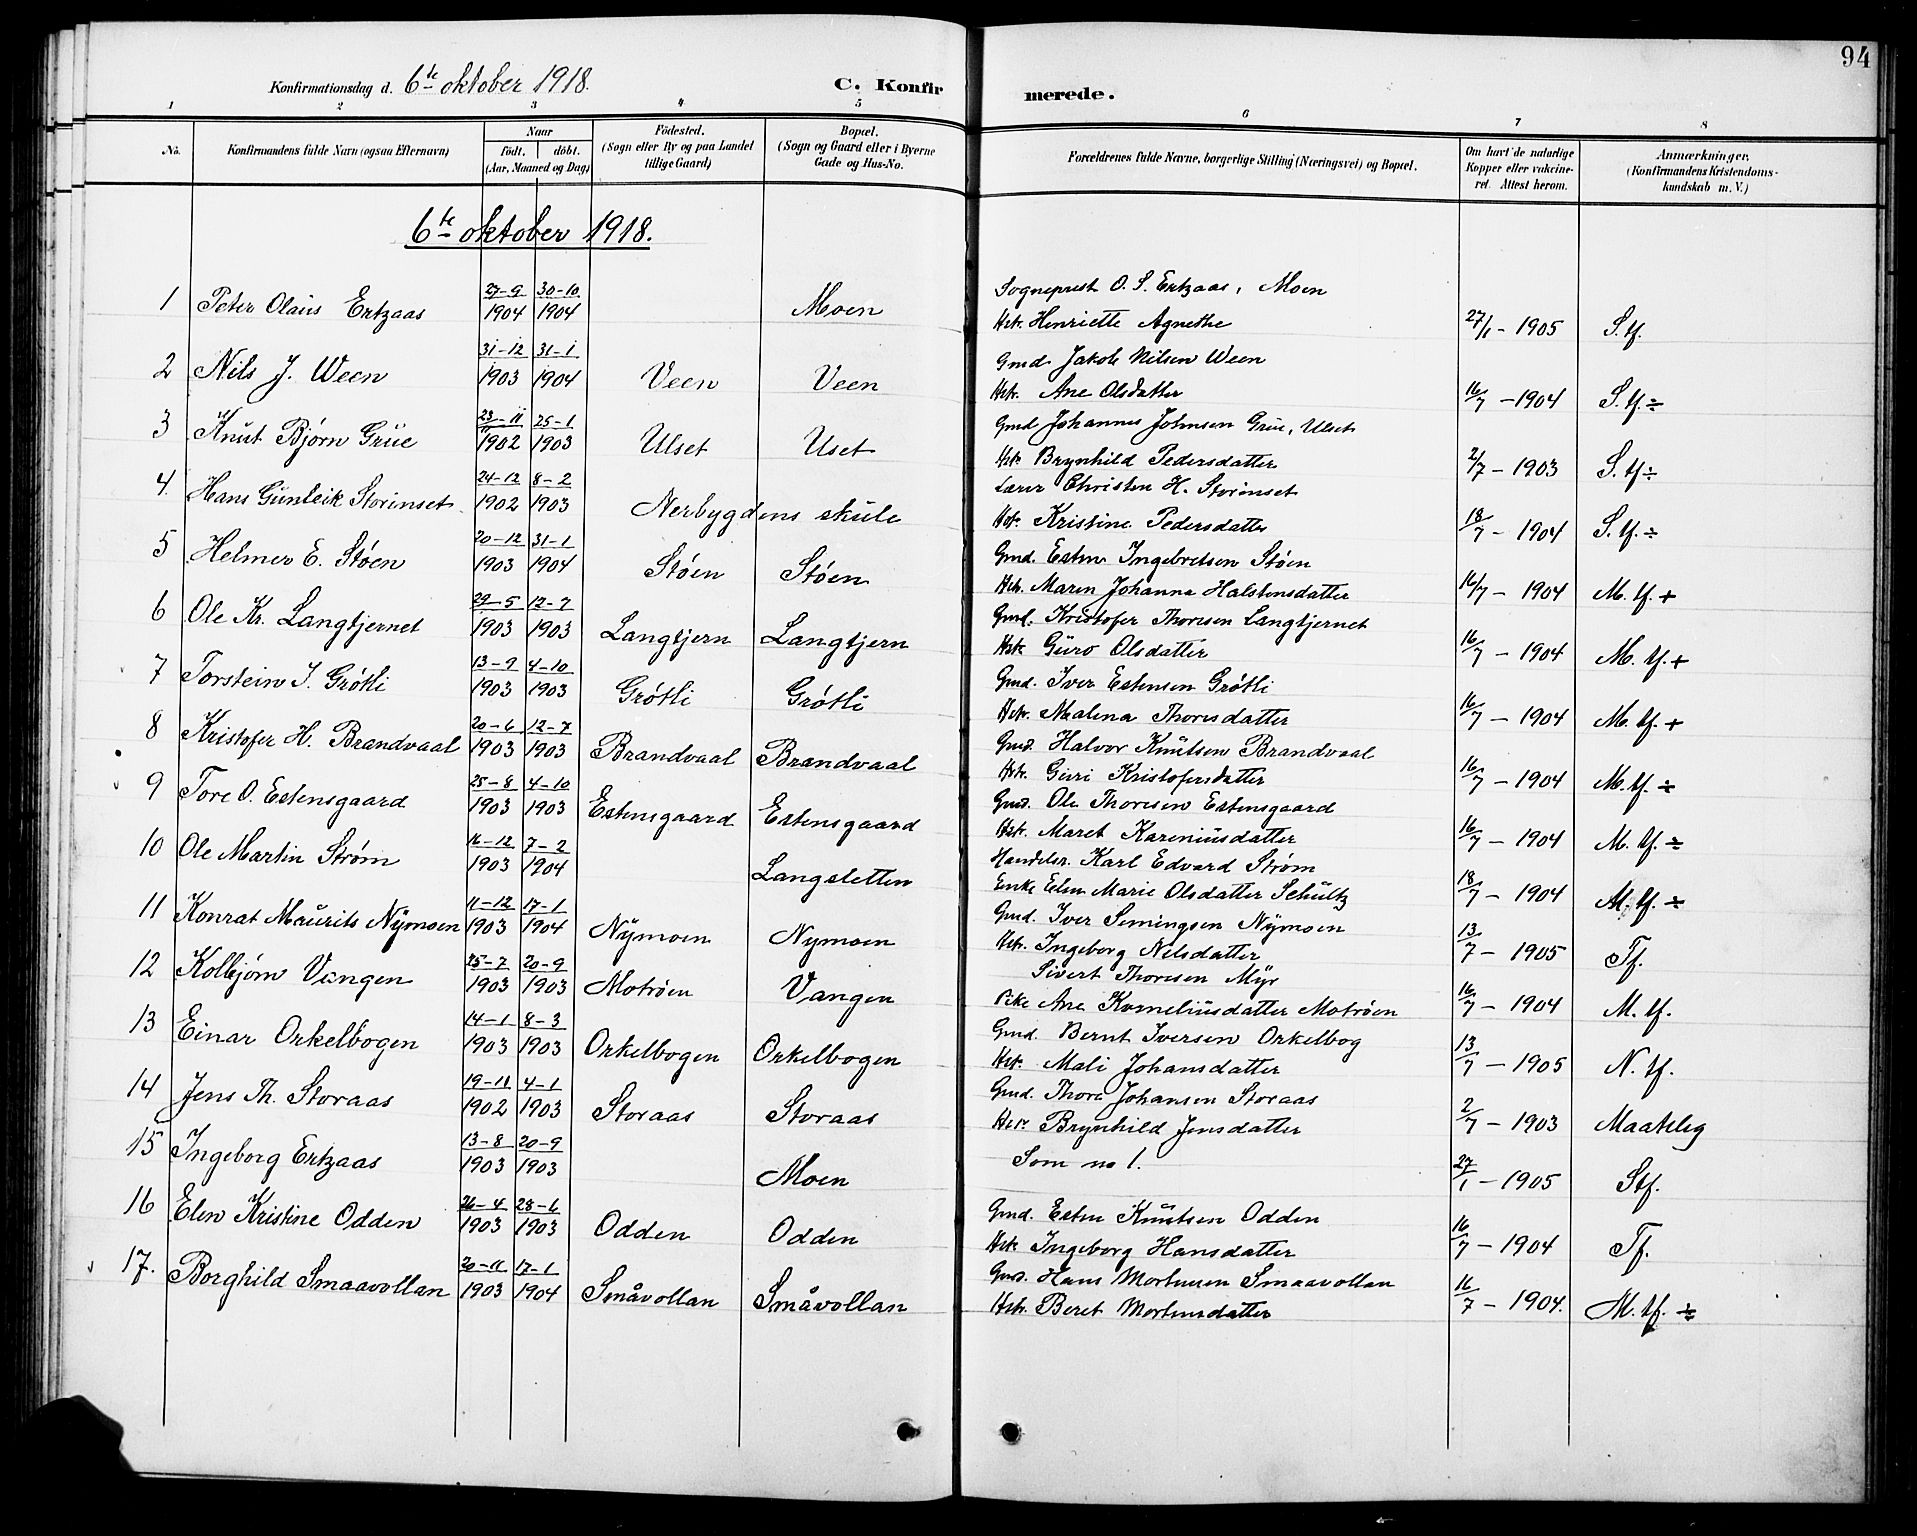 94
Konfirmationsdag d. 6te oktober 1918. C. Konfirmerede.
1 2 3 4 5 6 7 8
No. Konfirmandens fulde Navn (ogsaa Efternavn) Naar födt. döbt. (Aar, Maaned og Dag) Födested. (Sogn eller By og paa Landet tillige Gaard) Bopæl. (Sogn og Gaard eller i Byerne Gade og Hus-No. Forældrenes fulde Navne, borgerlige Stilling (Næringsvei) og Bopæl. Om havt de naturlige Kopper eller vakcineret. Attest herom. Anmærkninger, (Konfirmandens Kristendomskundskab m. V.)
6te oktober 1918.
1 Peter Olaus Ertzaas 27-9 1904 30-10 1904 Moen Sogneprest O. S. Ertzaas, Moen
Hstr. Henriette Agnethe 27/1 - 1905 S. tf.
2 Nils J. Ween 31-12 1903 31-1 1904 Veen Veen Gmd. Jakob Nilsen Ween
Hstr. Ane Olsdatter 16/7 - 1904 S. tf. ÷
3 Knut Bjørn Grue 23-11 1902 25-1 1903 Ulset Uset Gmd. Johannes Johnsen Grue, Ulset
Hstr. Brynhild Pedersdatter 2/7 - 1903 S. tf ÷
4. Hans Gunleik Storinset 24-12 1902 8-2 1903 Nerbygdens skule Lærer Christen H. Storinset
Hstr. Kristine Pedersdatter 18/7 - 1904 S. tf. ÷
5 Helmer E. Støen 20-12 1903 31-1 1904 Støen Støen Gmd. Esten Ingebretsen Støen
Hstr. Maren Johanna Halstensdatter 16/7 - 1904 M. tf. +
6 Ole Kr. Langtjernet 29-5 1903 12-7 1903 Langtjern Langtjern Gmd. Kristofer Thoresen Langtjernet
Hstr. Guro Olsdatter 16/7 - 1904 M. tf. +
7 Torstein I. Grøtli 13-9 1903 4-10 1903 Grøtli Grøtli Gmd. Iver Estensen Grøtli
Hstr. Malena Thoresdatter 16/7 - 1904 M. tf. +
8 Kristofer H. Brandvaal 20-6 1903 12-7 1903 Brandvaal Brandvaal Gmd. Halvor Knutsen Brandvaal
Hstr. Guri Kristofersdatter 16/7 - 1904 M. tf. ÷
9 Tore O. Estensgaard 25-8 1903 4-10 1903 Estensgaard Estensgaard Gmd. Ole Thoresen Estensgaard
Hstr. Maret Kareniusdatter 16/7 - 1904 M. tf. ÷
10 Ole Martin Strøm 16-12 1903 7-2 1904 Langsletten Handelsr. Karl Edvard Strøm
Enke Elen Marie Olsdatter Schultz 18/7 - 1904 M. tf. ÷
11 Konrat Maurits Nymoen 11-12 1903 17-1 1904 Nymoen Nymoen Gmd. Iver Semingsen Nymoen
Hstr. Ingeborg Nilsdatter 13/7 - 1905 Tf.
12 Kolbjørn Vangen 25-7 1903 20-9 1903 Motrøen Vangen Sivert Thoresen Myr
Pike Ane Korneliusdatter Motrøen 16/7 - 1904 M. tf.
13 Einar Orkelbogen 14-1 1903 8-3 1903 Orkelbogen Orkelbogen Gmd. Bernt Iversen Orkelbog
Hstr. Mali Johansdatter 13/7 - 1905 N. tf.
14 Jens Th. Storaas 19-11 1902 4-1 1903 Storaas Storaas Gmd. Thore Johansen Storaas
Hstr. Brynhild Jensdatter 2/7 - 1903 Maatelig
15 Ingeborg Ertzaas 13-8 1903 20-9 1903 Moen Som no 1. 27/1 - 1905 Stf.
16 Elen Kristine Odden 26-4 1903 28-6 1903 Odden Odden Gmd. Esten Knutsen Odden
Hstr. Ingeborg Hansdatter 16/7 - 1904 Tf.
17. Borghild Smaavollan 20-11 1903 17-1 1904 Småvollan Småvollan Gmd. Hans Mortensen Smaavollan
Hstr. Beret Mortensdatter 16/7 - 1904. M. tf. ÷